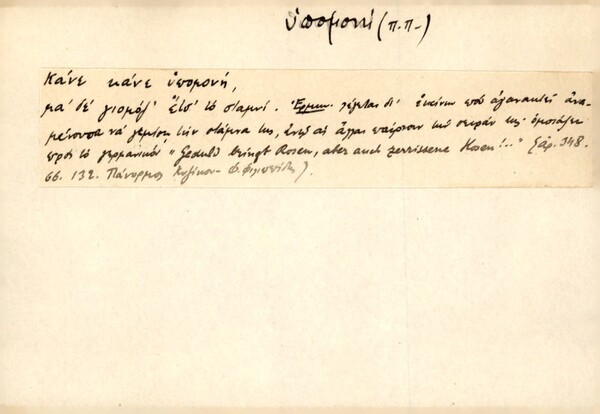 ὑπομονή (π.π.)
Κάνε κάνε ὑπομονή,
μὰ δὲ γιομόζ' ἔτσ' τὸ σταμνί. Ἑρμην. λέγεται δι' ἐκείνην ποὺ ἀγανακτεῖ ἀνα-
μένουσα νὰ γεμίσῃ τὴν στάμνα της, ἐνῷ αἱ ἄλλαι παίρνουν τὴν σειράν της ὁμοιάζει
πρὸς τὸ γερμανικὸ "Geduld bringt Rosen, aber auch zerrissene Hosen!.." (ἀρ. 348.
σσ. 132. Πάνορμος Κυζίκου- Φ. Φιλιππίδης)